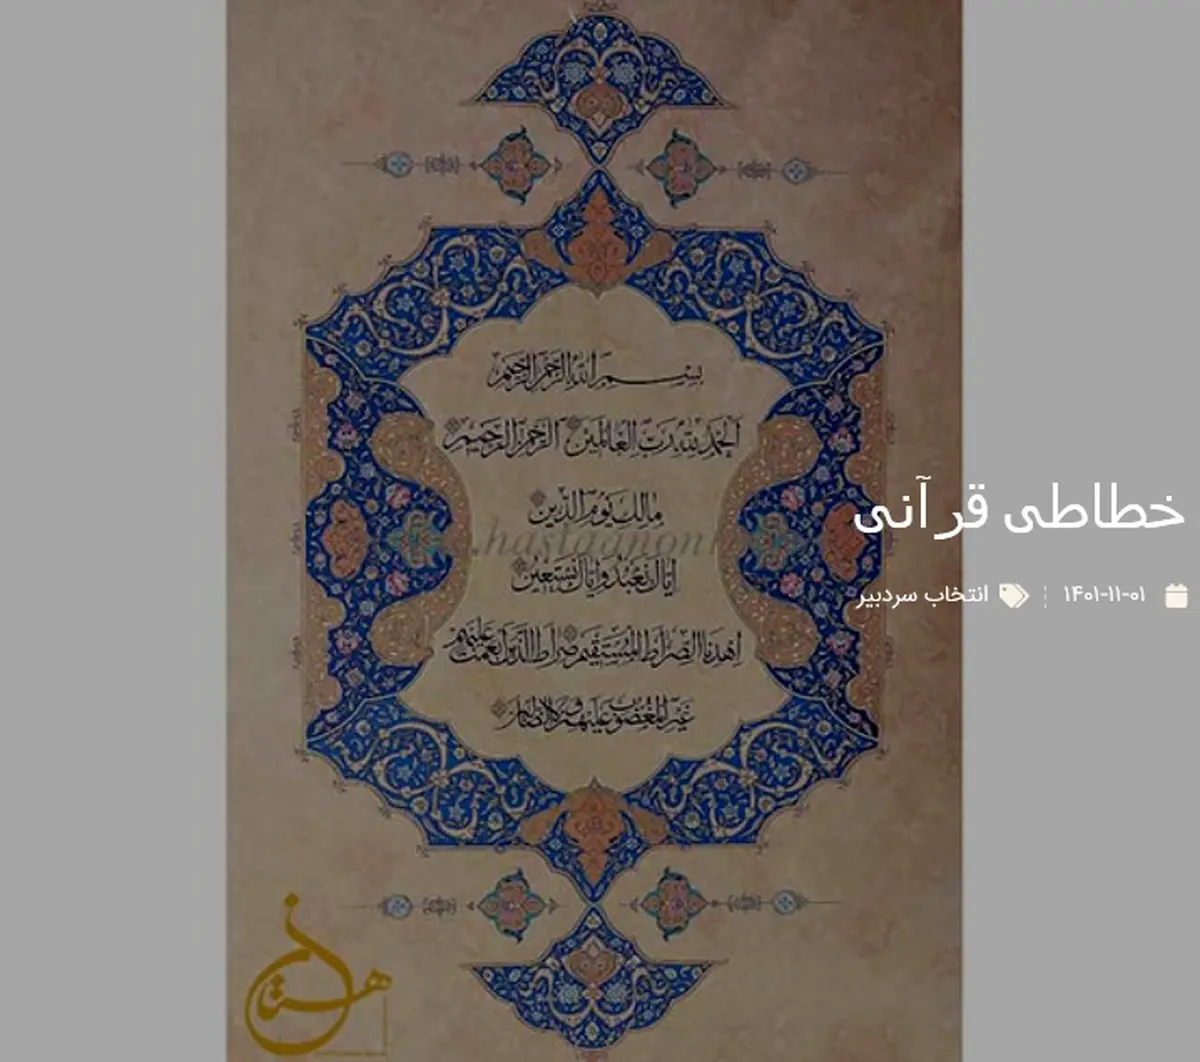 بِسْمِ اللَّهِ الرَّحْمَنِ الرَّحِيمِ
اَلْحَمْدُ لِلَّهِ رَبِّ الْعَالَمِينَ الرَّحْمَنِ الرَّحِيمِ
مَالِكِ يَوْمِ الدِّينِ
إِيَّاكَ نَعْبُدُ وَإِيَّاكَ نَسْتَعِينُ
اِهْدِنَا الصِّرَاطَ الْمُسْتَقِيمَ صِرَاطَ الَّذِينَ أَنْعَمْتَ عَلَيْهِمْ
غَيْرِ الْمَغْضُوبِ عَلَيْهِمْ وَلَا الضَّالِّينَ
خطاطی قرآنی
۱۴۰۱-۱۱-۰۱
انتخاب سردبیر
هستان